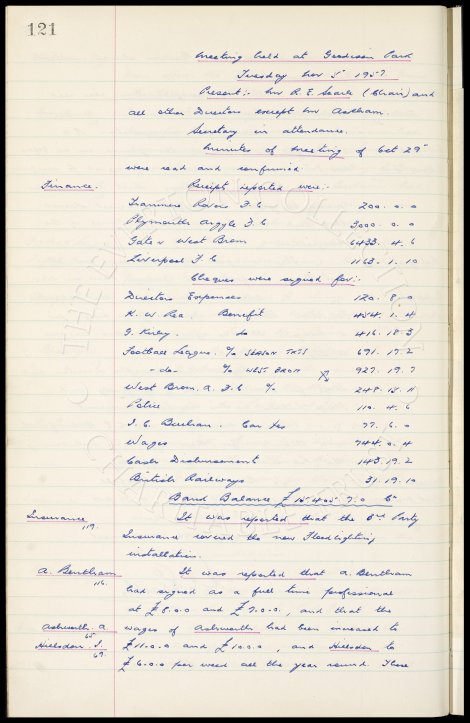 121
Meeting held at Goodison Park
Tuesday Nov 5th 1957.
Present:- Mr R. E. Searle (Chair) and
all other Directors except Mr Askham.
Secretary in attendance.
Minutes of Meeting of Oct 29th
were read and confirmed
Finance. Receipts reported were:-
Tranmere Rovers F.C 200. 0. 0
Plymouth Argyle F.C 3000. 0. 0
Gate v West Brom 6433. 4. 6
Liverpool F.C 1163. 1. 10
Cheques were signed for:-
Directors Expenses 120. 8. 0
K. W. Rea. Benefit 454. 1. 4
J. Kirby. do 416. 18. 3
Football League. % SEASON TKTS 691. 17. 2
-do- % WEST BROM 927. 19. 7
West Brom. A. F.C % 248. 15. 11
Police 110. 4. 6
Car 77. 6. 0
Wages 744. 0. 4
Cash Disbursement 143. 19. 2
British Railways 31. 19. 10
Bank Balance £15405. 7. 0
Insurance 119. It was reported that the 3rd Party
Insurance covered the new Floodlighting
installation.
A. Bentham 116. It was reported that A. Bentham
had signed as a full time professional
at £8.0.0 and £7.0.0., and that the
Ashworth A. 65 wages of Ashworth had been increased to
Hillsdon J. 69. £11.0.0 and £10.0.0, and Hillsdon to
£6.0.0 per week all the year round. These
THE EVERTON COLLECTION
CHARITABLE TRUST